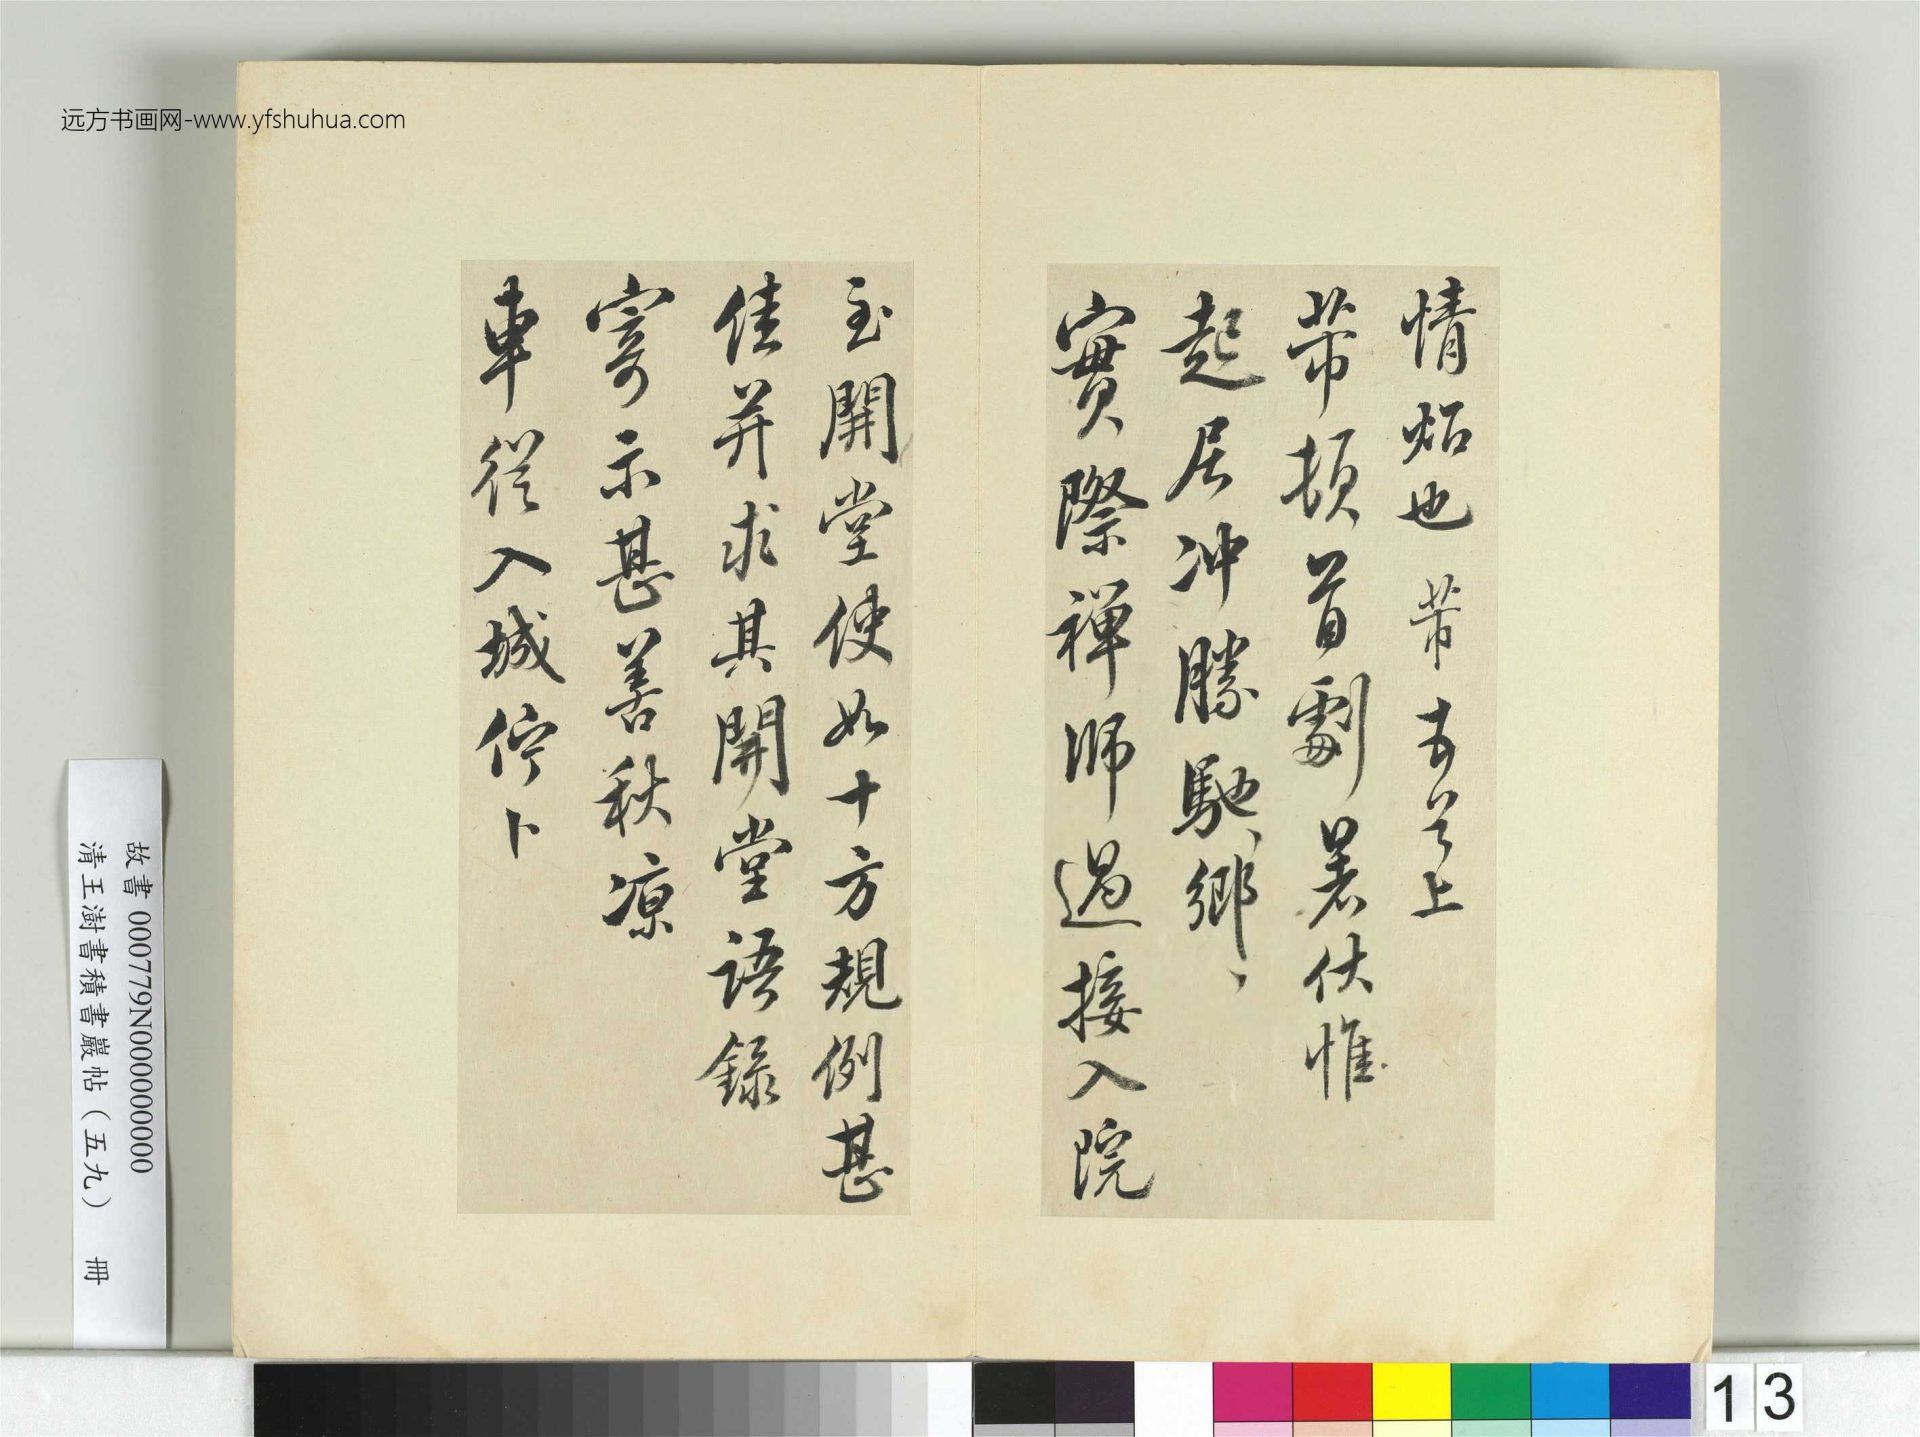 远方书画网-www.yfshuhua.com
情炤也芾上
芾頓首劇暑伏惟
起居冲勝馳、鄉、
實際禪師過接入院
至開堂使如十方規例甚
佳并求其開堂語錄
寄示甚善秋涼
車從入城佇卜
故書 000779N000000000
清王澍書積書巖帖（五九） 冊
13